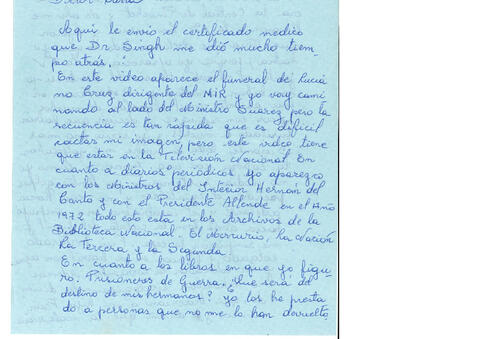 Aqui le envio el certificado medico
que Dr Singh me dió mucho tiem
po atras.
En este video aparece el funeral de Lucia
no Cruz dirigente del MIR y yo voy cami
nando al lado del Ministro Suarez pero la
secuencia es tan rápida que es dificil
captar mi imagen pero este video tiene
que estar en la Televisión Nacional. En
cuanto a diarios periodicos yo aparezco
con los Ministros del Interior Hernán del
Canto y con el Presidente Allende en el Año
1972 todo esto esta en los Archivos de la
Biblioteca Nacional. El Mercurio, La Nación
La Tercera y la Segunda.
En cuanto a los libros en que yo figu
ro. Prisioneros de Guerra. ¿Que será del
destino de mis hermanos? yo los he presta
do a personas que no me lo han devuelto.